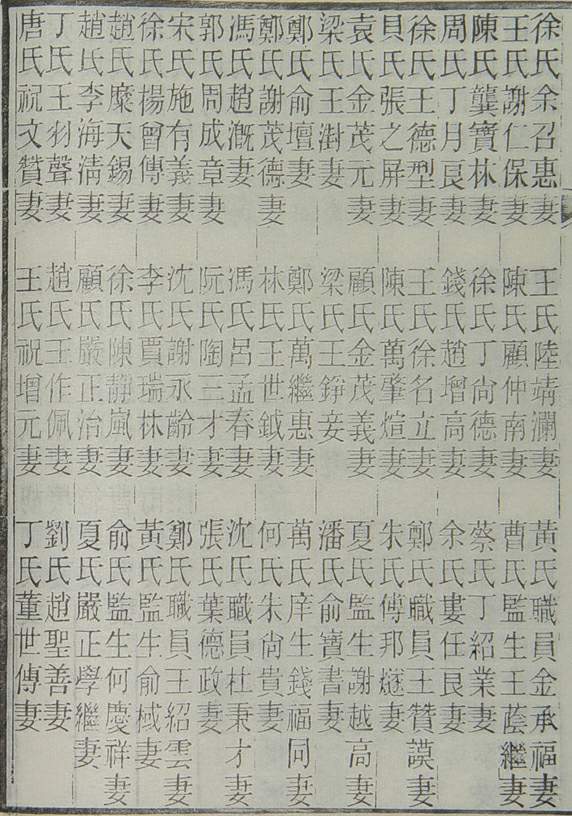 徐氏余召惠妻　王氏陸靖瀾妻　黃氏職員金承福妻
王氏謝仁保妻　陳氏顧仲南妻　曹氏監生王蔭繼妻
陳氏龔寶林妻　徐氏丁尙德妻　蔡氏丁紹業妻
周氏丁月艮妻　錢氏趙增高妻　余氏婁任艮妻
徐氏王德型妻　王氏徐名立妻　鄭氏職員王贊謨妻
貝氏張之屏妻　陳氏萬肇煊妻　朱氏傅邦燧妻
袁氏金茂元妻　顧氏金茂義妻　夏氏監生謝越高妻
梁氏王澍妻　梁氏王錚妾　潘氏俞寶書妻
鄭氏俞壇妻　鄭氏萬繼惠妻　萬氏庠生錢福同妻
鄭氏謝茂德妻　林氏王世鉞妻　何氏朱尙貴妻
馮氏趙溉妻　馮氏呂孟春妻　沈氏職員杜秉才妻
郭氏周成章妻　阮氏陶三才妻　張氏葉德政妻
宋氏施有義妻　沈氏謝永齡妻　鄭氏職員王紹雲妻
徐氏楊曾傳妻　李氏賈瑞林妻　黃氏監生俞棫妻
趙氏糜天錫妻　徐氏陳靜嵐妻　俞氏監生何慶祥妻
趙氏李海淸妻　顧氏嚴正治妻　夏氏嚴正學繼妻
丁氏王羽聲妻　趙氏王作佩妻　劉氏趙聖善妻
唐氏祝文贊妻　王氏祝增元妻　丁氏董世傳妻